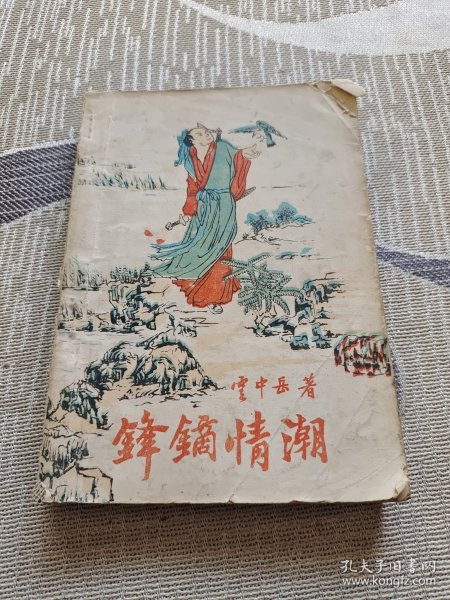 雲中岳 著
鋒鏑情潮
孔夫子旧书网
www.kongfz.com